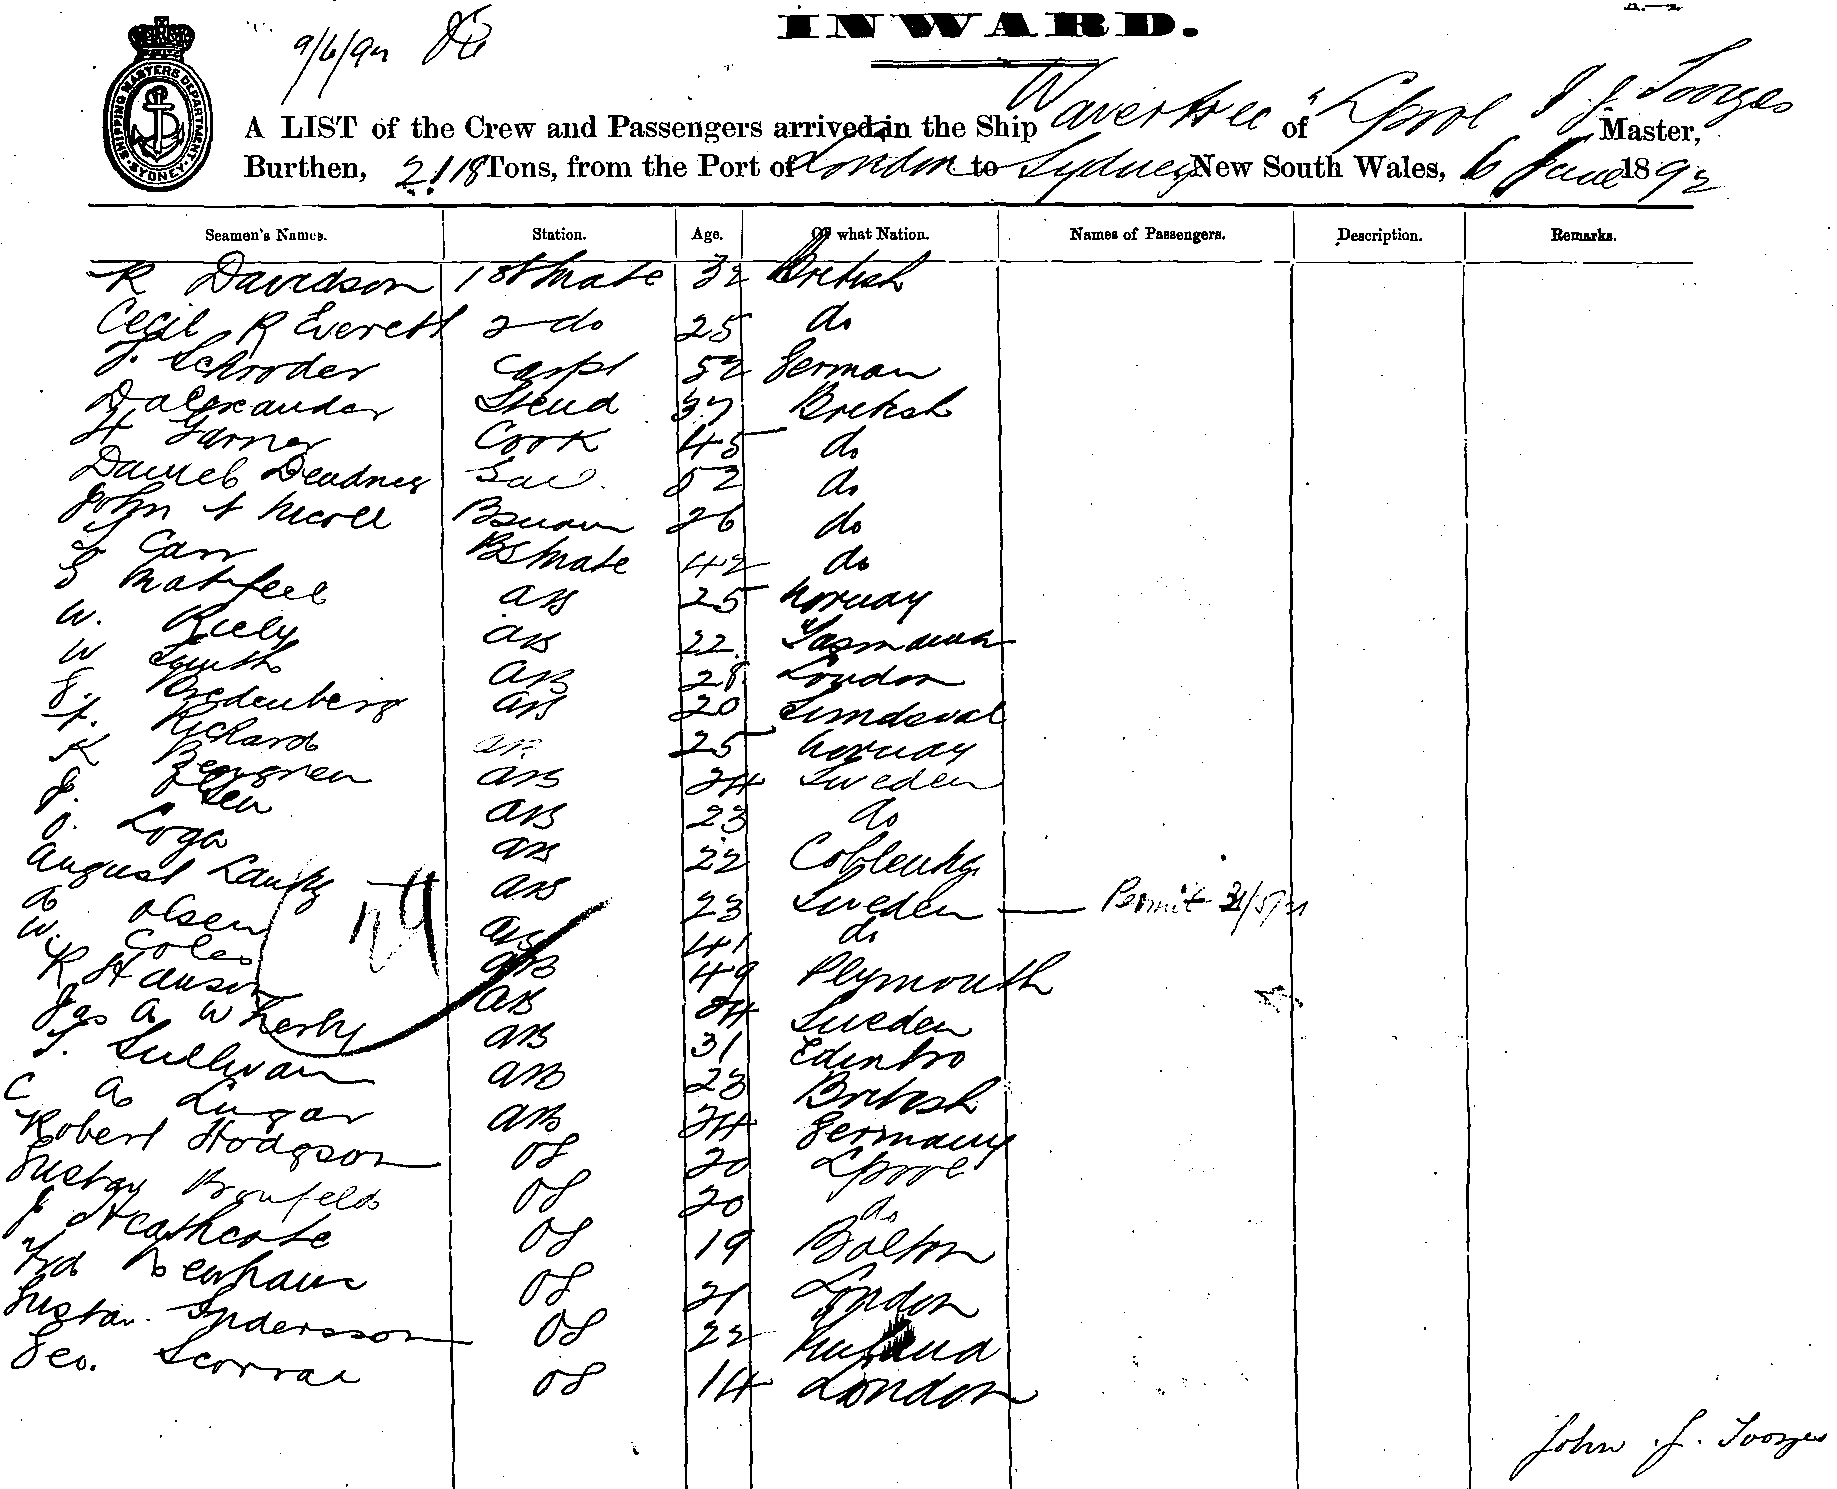 INWARD.
9/6/92
SHIPPING MASTERS DEPARTMENT SYDNEY
A LIST of the Crew and Passengers arrived in the Ship Wavertree of Lpool J J Toozes Master,
Burthen, 2118 Tons, from the Port of London to Sydney New South Wales, 6 June 1892
Seamen's Names. Station. Age. Of what Nation. Names of Passengers. Description. Remarks.
R Davidson 1st Mate 32 British
Cecil R Everett 2 do 25 do
J. Schroder Carpt 52 German
D Alexander Steud 37 British
H Garner Cook 45 do
Daniel Deudney Sail 52 do
John A Nicoll Bsuan 26 do
Carr Bs Mate 42 do
Matfeel AB 25 Norway
W. Riely AB 22 Tasmania
W Smith AB 28 London
Bredenberg AB 20 Sundsval
Richard AB 25 Norway
K Bergren AB 24 Sweden
J. Olsen AB 23 do
J. Loga AB 22 Coblentz
August Lautz AB 23 Sweden — Permit 31/5/92
A Olsen AB 41 do
W. Coles AB 49 Plymouth
R Hanson AB 24 Sweden
Jas A Wherby AB 31 Edinbro
T. Sullivan AB 23 British
C A Lugar AB 24 Germany
Robert Hodgson OS 20 Lpool
Gustav Bronfeldo OS 20 do
J Heathcote OS 19 Bolton
Frd Newhaus OS 21 London
Gustav. Andersson OS 22
Geo. Scorrar OS 14 London
John J. Toozes